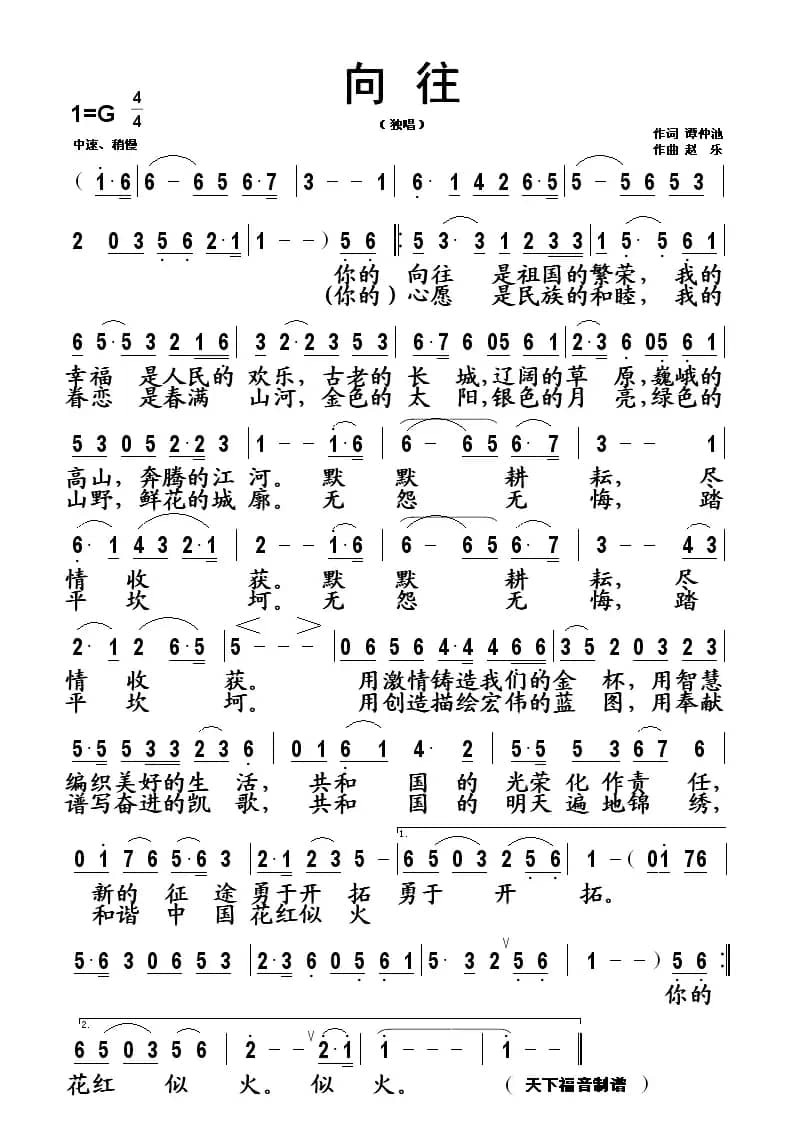 向 往
1=G 4/4
（独唱）
中速、稍慢
作词 谭仲池
作曲 赵 乐
( 1·6 | 6 – 6 5 6·7 | 3 – – 1 | 6· 1 4 2 6·5 | 5 – 5 6 5 3 |
2 0 3 5 6 2·1 | 1 – – ) 5 6 |: 5 3· 3 1 2 3 3 | 1 5· 5 6 1 |
你的 向往 是祖国的繁荣，我的
(你的)心愿 是民族的和睦，我的
6 5·5 3 2 1 6 | 3·2 2 3 5 3 | 6·7 6 05 6 1 | 2·3 6 05 6 1 |
幸福 是人民的 欢乐，古老的 长 城，辽阔的 草 原，巍峨的
眷恋 是春满 山河，金色的 太 阳，银色的 月 亮，绿色的
5 3 0 5 2·2 3 | 1 – – 1·6 | 6 – 6 6 5 6·7 | 3 – – 1 |
高山，奔腾的江 河。 默 默 耕 耘， 尽
山野，鲜花的城 廓。 无 怨 无 悔， 踏
6· 1 4 3 2·1 | 2 – – 1·6 | 6 – 6 6 5 6·7 | 3 – – 4 3 |
情 收 获。 默 默 耕 耘， 尽
平 坎 坷。 无 怨 无 悔， 踏
2· 1 2 6·5 | 5 – – – | 0 6 5 6 4·4 4 6 6 | 3 5 2 0 3 2 3 |
情 收 获。 用激情铸造我们的金 杯，用智慧
平 坎 坷。 用创造描绘宏伟的蓝 图，用奉献
5·5 5 3 3 2 3 6 | 0 1 6 1 4· 2 | 5·5 5 3 6 7 6 |
编织美好的生 活， 共和 国 的 光荣 化 作责 任，
谱写奋进的凯 歌， 共和 国 的 明天 遍 地锦 绣，
0 1 7 6 5·6 3 | 2·1 2 3 5 – | 1. 6 5 0 3 2 5 6 | 1 – ( 01 76 |
新的 征 途 勇于开 拓 勇于 开 拓。
和谐 中 国 花红似 火
5·6 3 0 6 5 3 | 2·3 6 0 5 6 1 | 5· 3 2 V 5 6 | 1 – – ) 5 6 :||
你的
2. 6 5 0 3 5 6 | 2 – V 2·1 | 1 – – – | 1 – – ‖
花红 似 火。似 火。
（ 天下福音制谱 ）